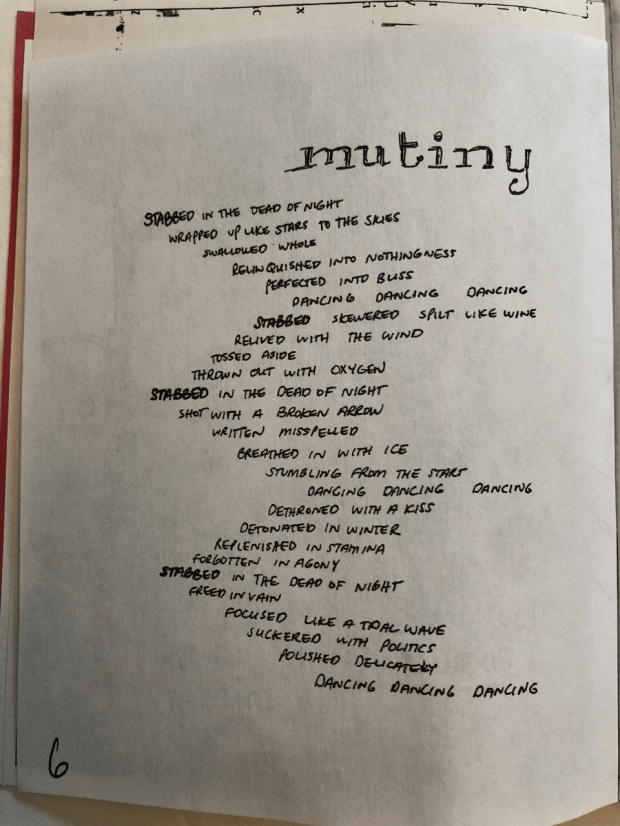 mutiny
STABBED IN THE DEAD OF NIGHT
WRAPPED UP LIKE STARS TO THE SKIES
SWALLOWED WHOLE
RELINQUISHED INTO NOTHINGNESS
PERFECTED INTO BLISS
DANCING DANCING DANCING
STABBED SKEWERED SPILT LIKE WINE
RELIVED WITH THE WIND
TOSSED ASIDE
THROWN OUT WITH OXYGEN
STABBED IN THE DEAD OF NIGHT
SHOT WITH A BROKEN ARROW
WRITTEN MISSPELLED
BREATHED IN WITH ICE
STUMBLING FROM THE START
DANCING DANCING DANCING
DETHRONED WITH A KISS
DETONATED IN WINTER
REPLENISHED IN STAMINA
FORGOTTEN IN AGONY
STABBED IN THE DEAD OF NIGHT
FREED IN VAIN
FOCUSED LIKE A TIDAL WAVE
SUCKERED WITH POLITICS
POLISHED DELICATELY
DANCING DANCING DANCING
6